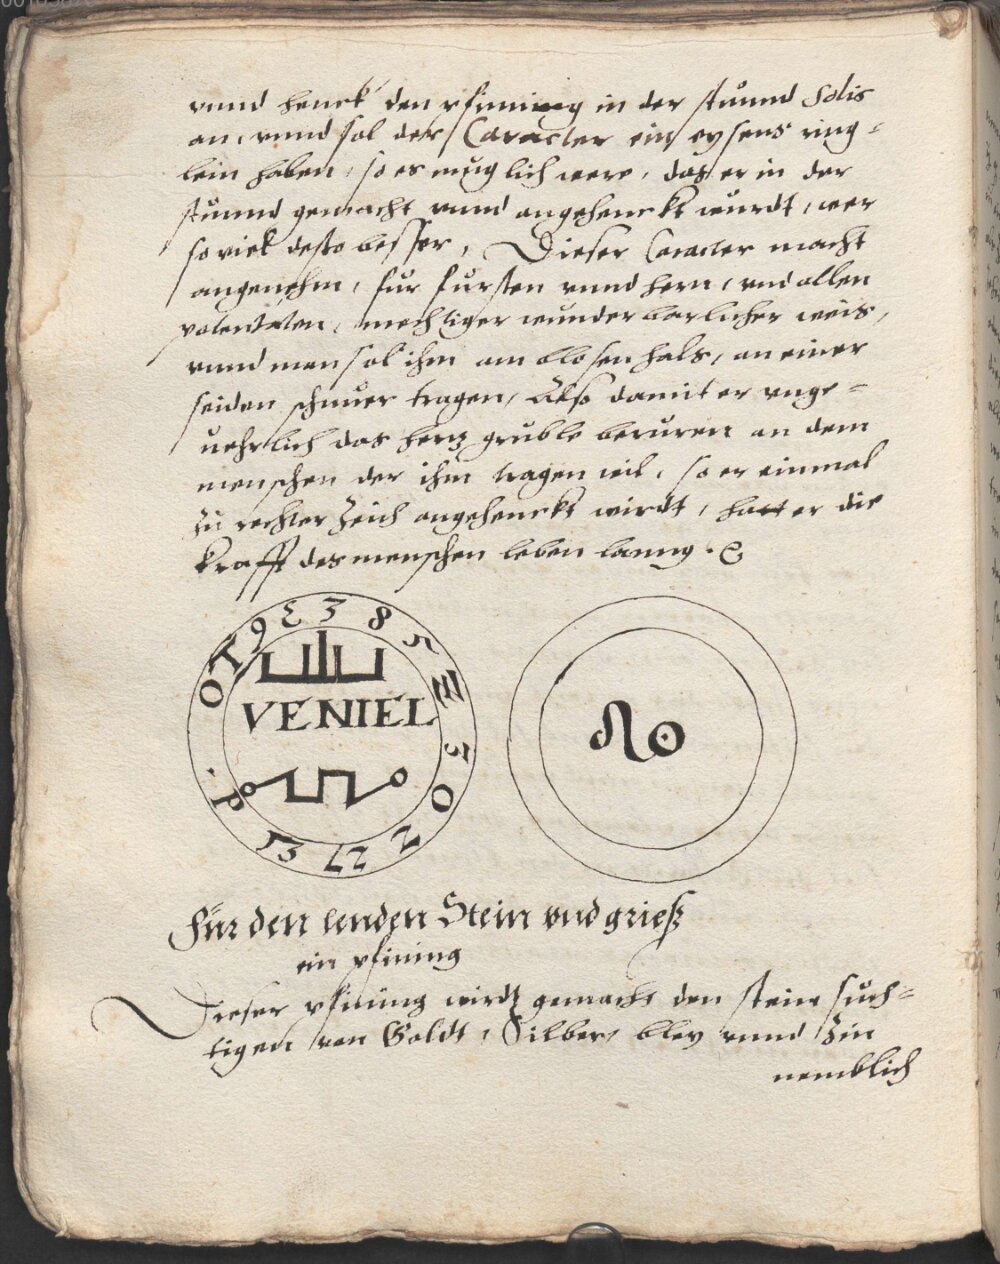 vnnd henck den pfinning in der stuund Solis
an, vnnd sol der Caracter ein eysens ring=
lein haben, so es muglich were, das er in der
stuund gemacht vnnd angehenckt wurdt, wer
so viel desto besser, Dieser Caracter macht
angenehm, fur fursten vnnd hern, vnd allen
potentaten, mechtiger wunderbarlicher weis,
vnnd man sol ihn am blosen hals, an einer
seiden schnuer tragen, Also damit er vnge=
uehrlich das hertz gruble beruren an dem
menschen der ihn tragen wil, so er einmal
zu rechter Zeich angehenckt wirdt, hatt er die
krafft des menschen leben lanng.
VENIEL
♌☉
Für den lenden Stein vnd grieß
ein pfining
Dieser pfining wirdt gemacht den stein such=
tigen von Goldt, Silber, bley vnnd Zin
nemblich